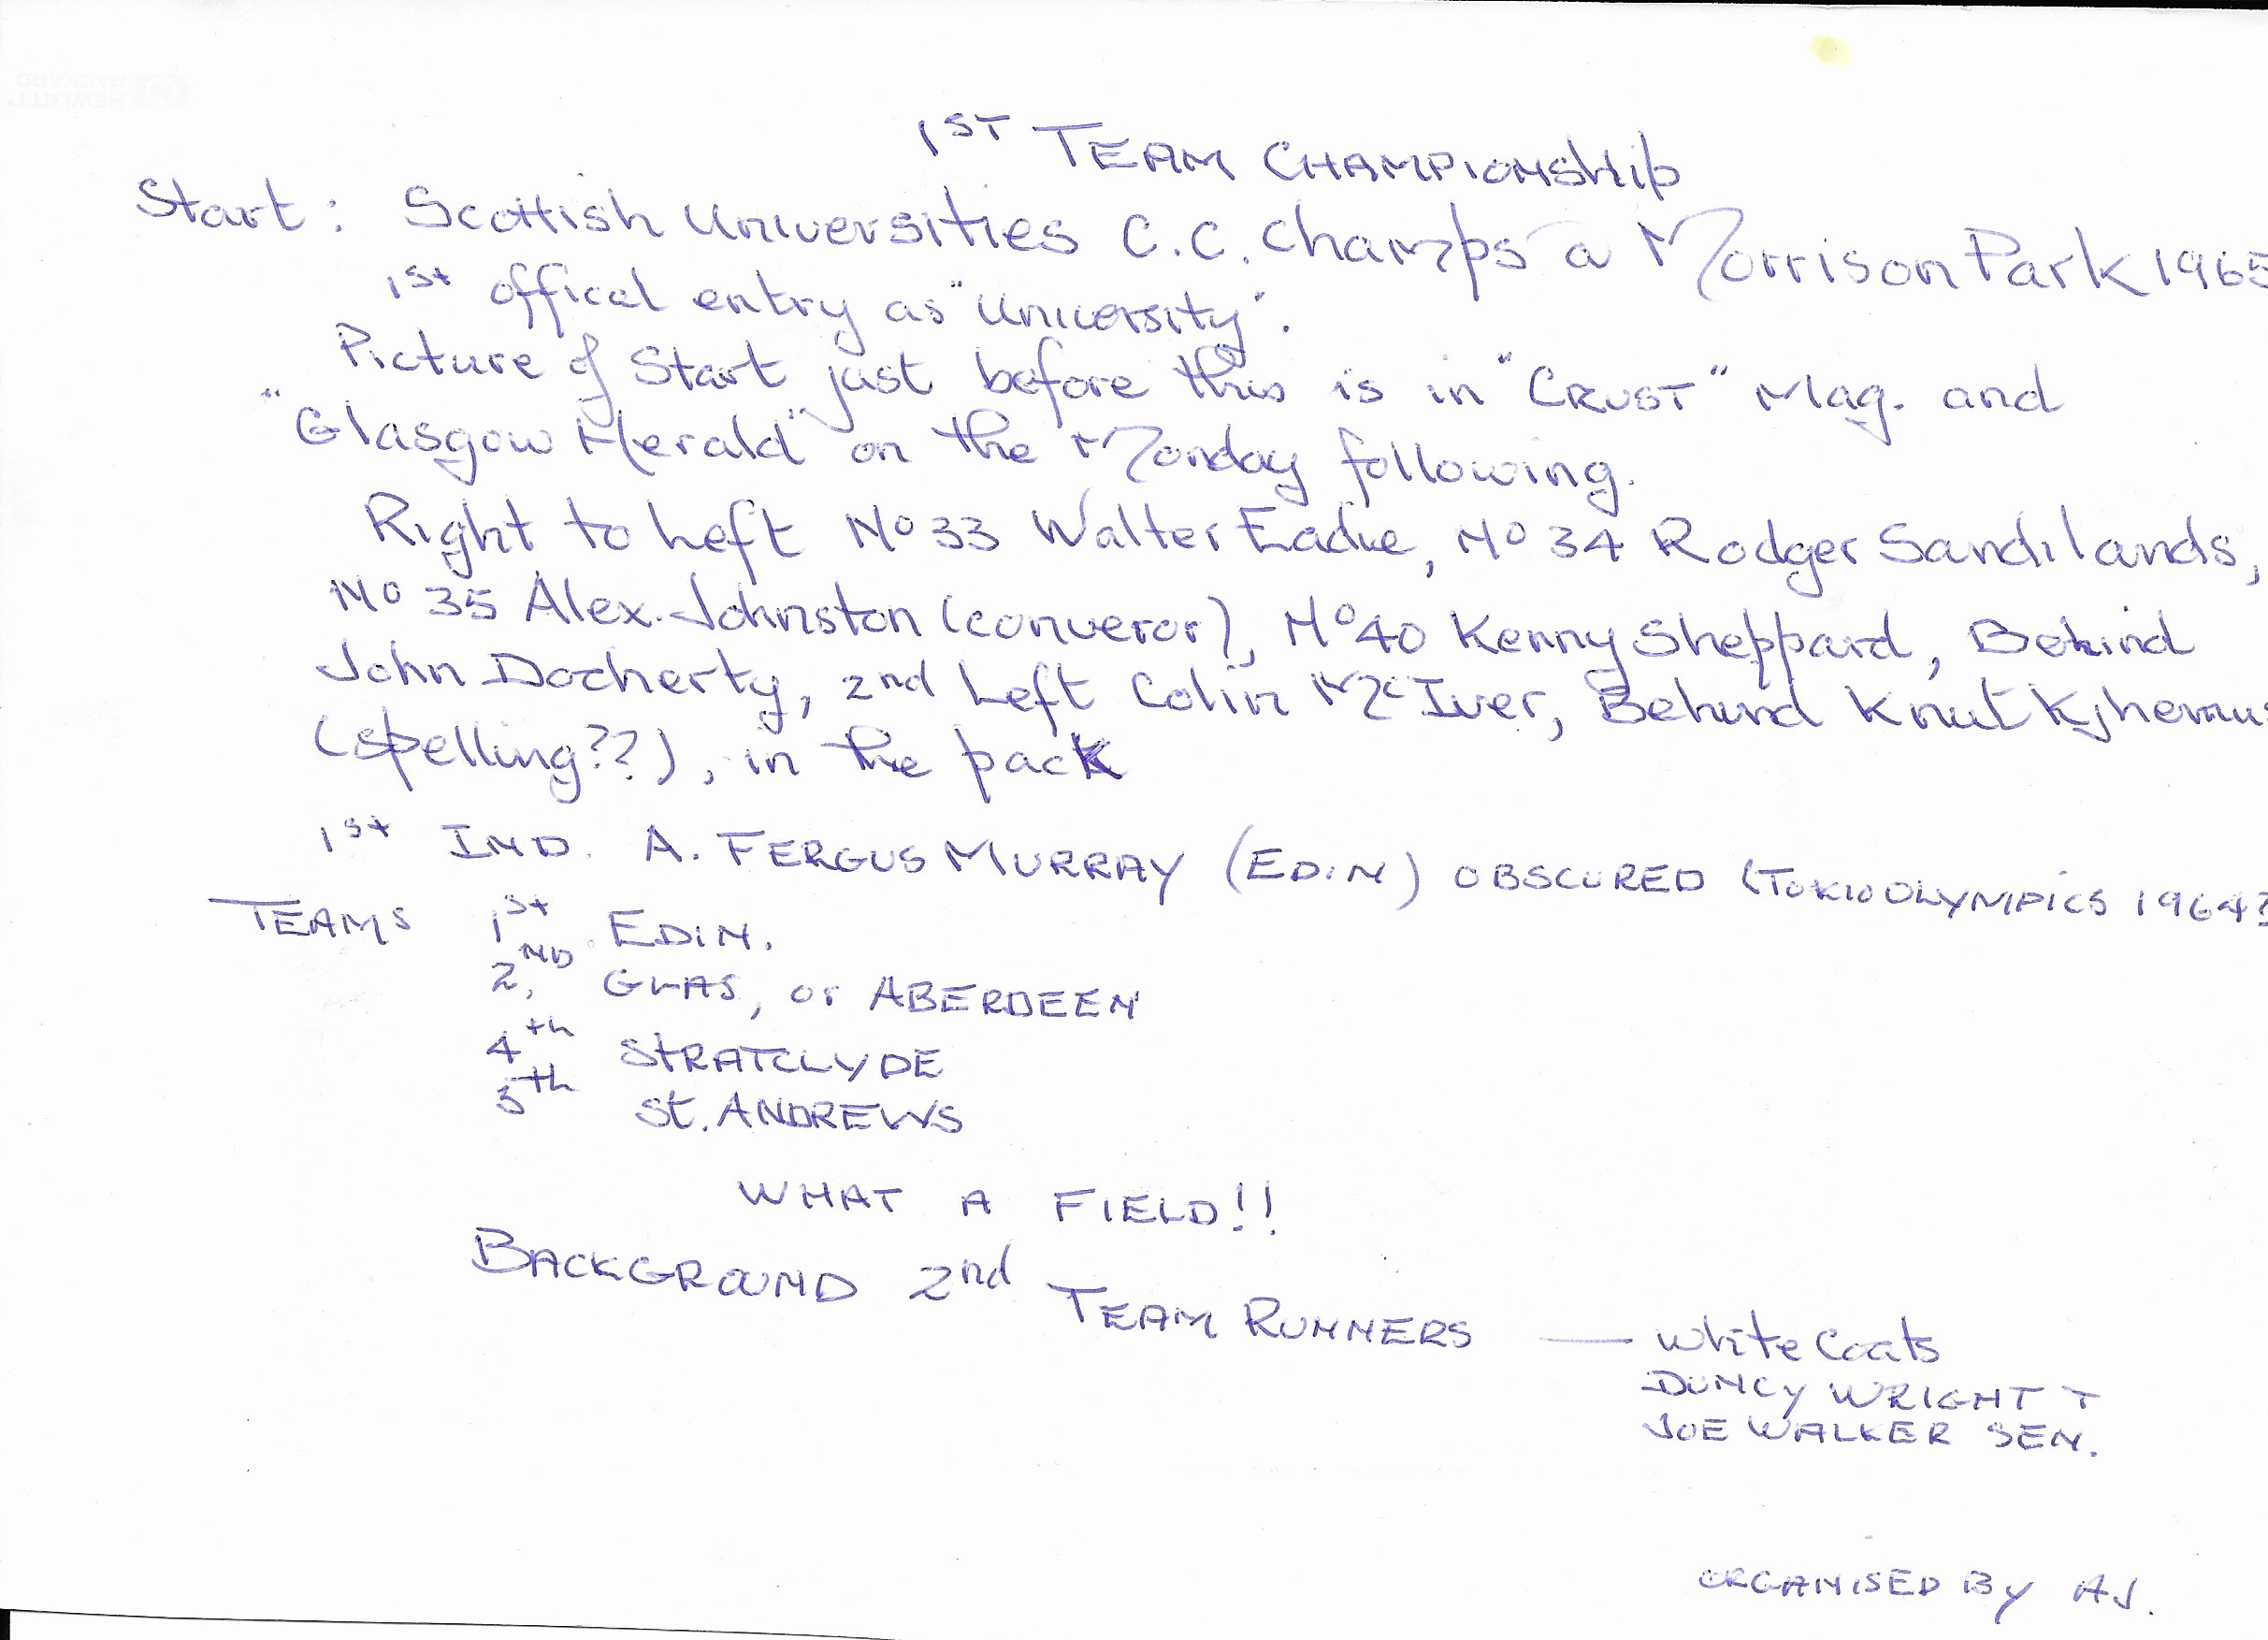 1ST TEAM CHAMPIONShip
Start: Scottish Universities C.C. Champs a Morrison Park 1965
1st offical entry as "University".
Picture of Start just before this is in "CRUST" Mag. and
"Glasgow Herald" on the Monday following.
Right to Left No 33 Walter Eadie, No 34 Rodger Sandilands,
No 35 Alex. Johnston (converor), No 40 Kenny Sheppard, Behind
John Docherty, 2nd Left Colin McIver, Behind Knut
(spelling??), in the pack
1st IND. A. FERGUS MURRAY (EDIN) OBSCURED (TOKIO OLYMPICS 1964?
TEAMS 1st EDIN.
2,ND GLAS, or ABERDEEN
4th STRATCLYDE
5th St. ANDREWS
WHAT A FIELD!!
BACKGROUND 2nd TEAM RUNNERS — White Coats
DUNCY WRIGHT T
JOE WALKER SEN.
ORGANISED By AJ.